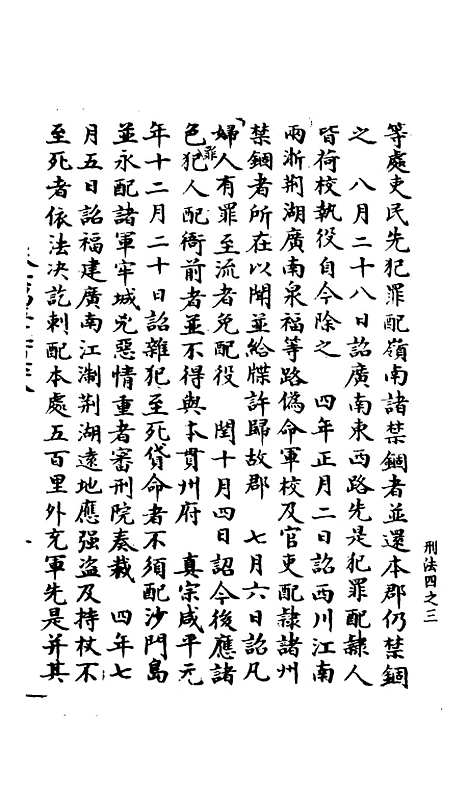 刑法四之三
等處吏民先犯罪配嶺南諸禁錮者並還本郡仍禁錮
之　八月二十八日詔廣南東西路先是犯罪配隸人
皆荷校執役自今除之　四年正月二日詔西川江南
兩浙荆湖廣南泉福等路偽命軍校及官吏配隸諸州
禁錮者所在以聞並給牒許歸故郡　七月六日詔凡
婦人有罪至流者免配役　閏十月四日詔今後應諸
色罪犯人配衙前者並不得與本貫州府　真宗咸平元
年十二月二十日詔雜犯至死貸命者不須配沙門島
並永配諸軍牢城兇惡情重者審刑院奏裁　四年七
月五日詔福建廣南江淛荆湖遠地應强盗及持杖不
至死者依法决訖刺配本處五百里外充軍先是并其
一